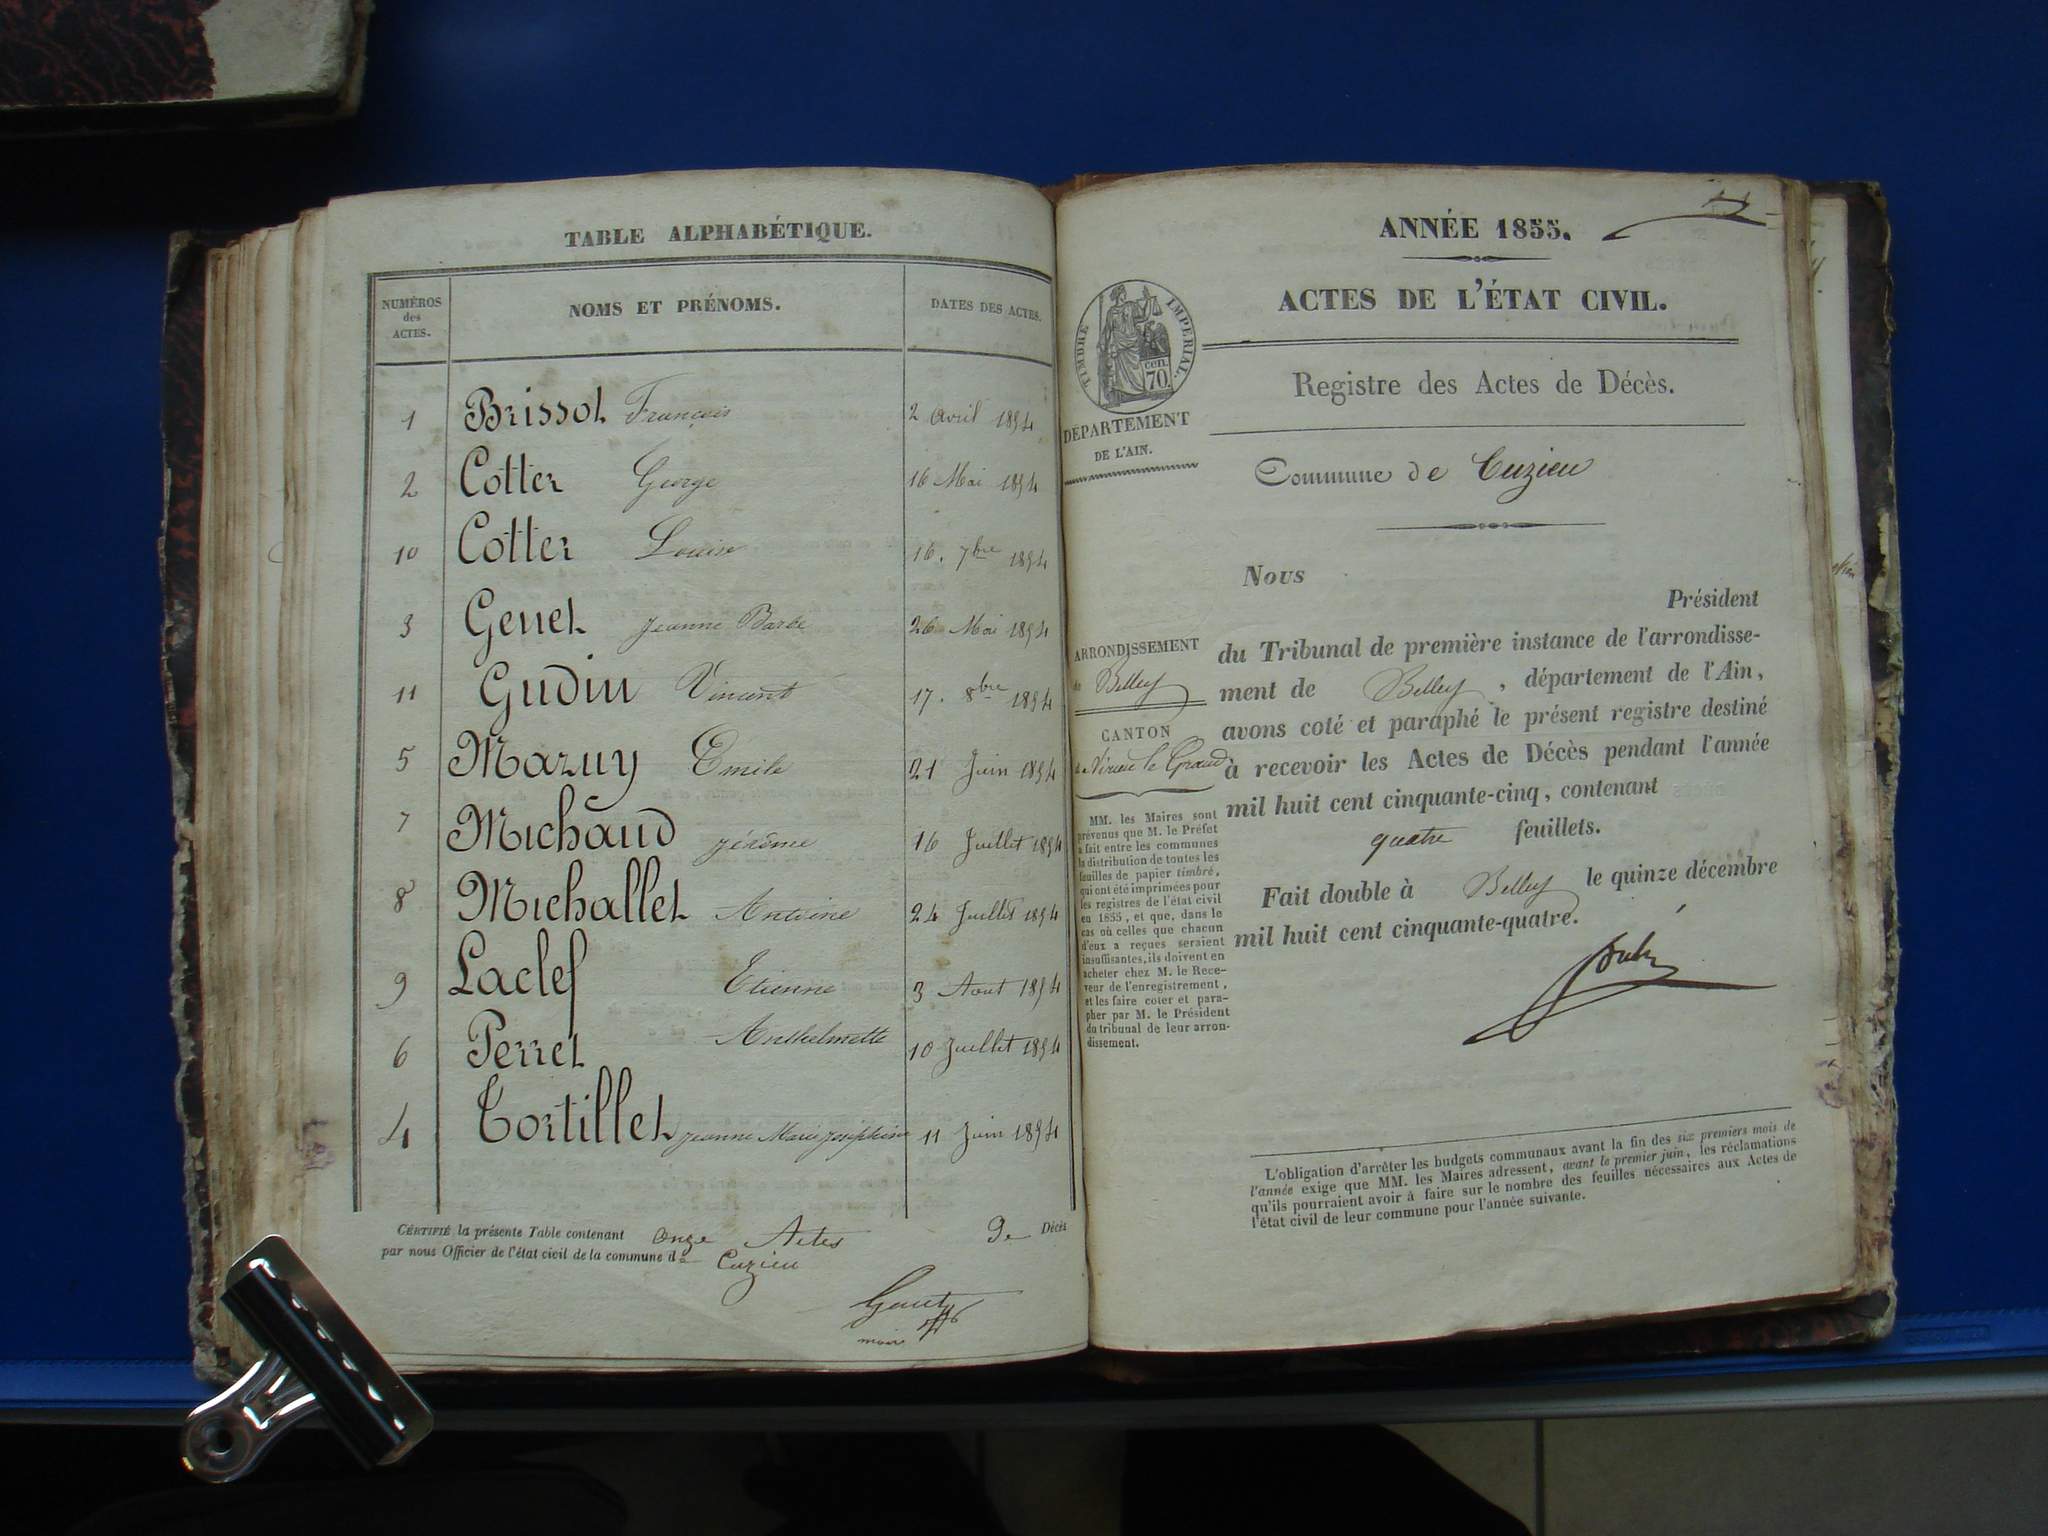 TABLE ALPHABÉTIQUE.
NUMÉROS des ACTES. NOMS ET PRÉNOMS. DATES DES ACTES.
1 Brissot François 2 avril 1854
2 Cotter George 16 Mai 1854
10 Cotter Louise 16. 7bre 1854
3 Genet Jeanne Barbe 26 Mai 1854
11 Gudin Vincent 17. 8bre 1854
5 Mazuy Emile 21 Juin 1854
7 Michaud Jérôme 16 Juillet 1854
8 Michallet Antoine 24 Juillet 1854
9 Laclef Etienne 3 Aout 1854
6 Perret Anthelmette 10 Juillet 1854
4 Tortillet Jeanne Marie Joséphine 11 Juin 1854
CERTIFIÉ la présente Table contenant onze Actes De Décès
par nous Officier de l'état civil de la commune de Cuzieu
maire
ANNÉE 1855.
ACTES DE L'ÉTAT CIVIL.
TIMBRE IMPÉRIAL.
cen.
70.
DÉPARTEMENT
DE L'AIN.
Registre des Actes de Décès.
Commune de Cuzieu
ARRONDISSEMENT
de Belley
CANTON
de Virieu le Grand
MM. les Maires sont
prévenus que M. le Préfet
a fait entre les communes
la distribution de toutes les
feuilles de papier timbré,
qui ont été imprimées pour
les registres de l'état civil
en 1855, et que, dans le
cas où celles que chacun
d'eux a reçues seraient
insuffisantes, ils doivent en
acheter chez M. le Rece-
veur de l'enregistrement,
et les faire coter et para-
pher par M. le Président
du tribunal de leur arron-
dissement.
Nous
Président
du Tribunal de première instance de l'arrondisse-
ment de Belley, département de l'Ain,
avons coté et paraphé le présent registre destiné
à recevoir les Actes de Décès pendant l'année
mil huit cent cinquante-cinq, contenant
quatre feuillets.
Fait double à Belley le quinze décembre
mil huit cent cinquante-quatre.
L'obligation d'arrêter les budgets communaux avant la fin des six premiers mois de
l'année exige que MM. les Maires adressent, avant le premier juin, les réclamations
qu'ils pourraient avoir à faire sur le nombre des feuilles nécessaires aux Actes de
l'état civil de leur commune pour l'année suivante.